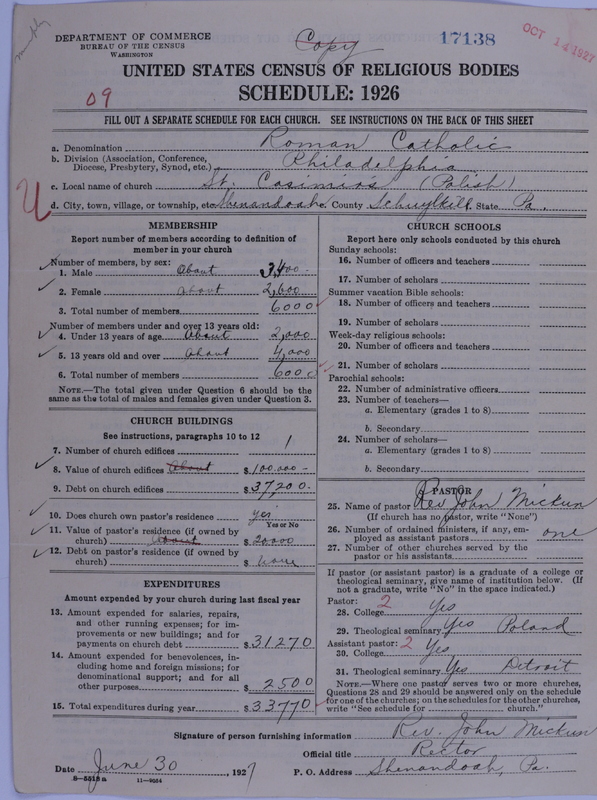 DEPARTMENT OF COMMERCE
BUREAU OF THE CENSUS
WASHINGTON
Copy
17138
OCT 14 1927
UNITED STATES CENSUS OF RELIGIOUS BODIES
SCHEDULE: 1926
09
FILL OUT A SEPARATE SCHEDULE FOR EACH CHURCH. SEE INSTRUCTIONS ON THE BACK OF THIS SHEET
a. Denomination Roman Catholic
b. Division (Association, Conference, Diocese, Presbytery, Synod, etc.) Philadelphia
c. Local name of church St. Casimir's (Polish)
U
d. City, town, village, or township, etc. Shenandoah County Schuylkill State Pa.
MEMBERSHIP
Report number of members according to definition of
member in your church
Number of members, by sex:
1. Male About 3,400-
2. Female About 2,600
3. Total number of members 6000
Number of members under and over 13 years old:
4. Under 13 years of age About 2,000
5. 13 years old and over About 4,000
6. Total number of members 6000
NOTE.—The total given under Question 6 should be the
same as the total of males and females given under Question 3.
CHURCH BUILDINGS
See instructions, paragraphs 10 to 12
7. Number of church edifices 1
8. Value of church edifices About $100,000-
9. Debt on church edifices $37,200.
10. Does church own pastor's residence yes
Yes or No
11. Value of pastor's residence (if owned by
church) About $20000
12. Debt on pastor's residence (if owned by
church) $ none
EXPENDITURES
Amount expended by your church during last fiscal year
13. Amount expended for salaries, repairs,
and other running expenses; for im-
provements or new buildings; and for
payments on church debt $31270
14. Amount expended for benevolences, in-
cluding home and foreign missions; for
denominational support; and for all
other purposes $2500
15. Total expenditures during year $33770
CHURCH SCHOOLS
Report here only schools conducted by this church
Sunday schools:
16. Number of officers and teachers
17. Number of scholars
Summer vacation Bible schools:
18. Number of officers and teachers
19. Number of scholars
Week-day religious schools:
20. Number of officers and teachers
21. Number of scholars
Parochial schools:
22. Number of administrative officers
23. Number of teachers—
a. Elementary (grades 1 to 8)
b. Secondary
24. Number of scholars—
a. Elementary (grades 1 to 8)
b. Secondary
PASTOR
25. Name of pastor Rev. John Mickun
(If church has no pastor, write "None")
26. Number of ordained ministers, if any, em-
ployed as assistant pastors one
27. Number of other churches served by the
pastor or his assistants
If pastor (or assistant pastor) is a graduate of a college or
theological seminary, give name of institution below. (If
not a graduate, write "No" in the space indicated.)
Pastor: 2
28. College Yes
29. Theological seminary Yes Poland
Assistant pastor: 2
30. College Yes
31. Theological seminary Yes Detroit
NOTE.—Where one pastor serves two or more churches,
Questions 28 and 29 should be answered only on the schedule
for one of the churches; on the schedules for the other churches,
write "See schedule for church."
Signature of person furnishing information Rev. John Mickun
Official title Rector
Date June 30, 1927 P. O. Address Shenandoah, Pa.
11—9064